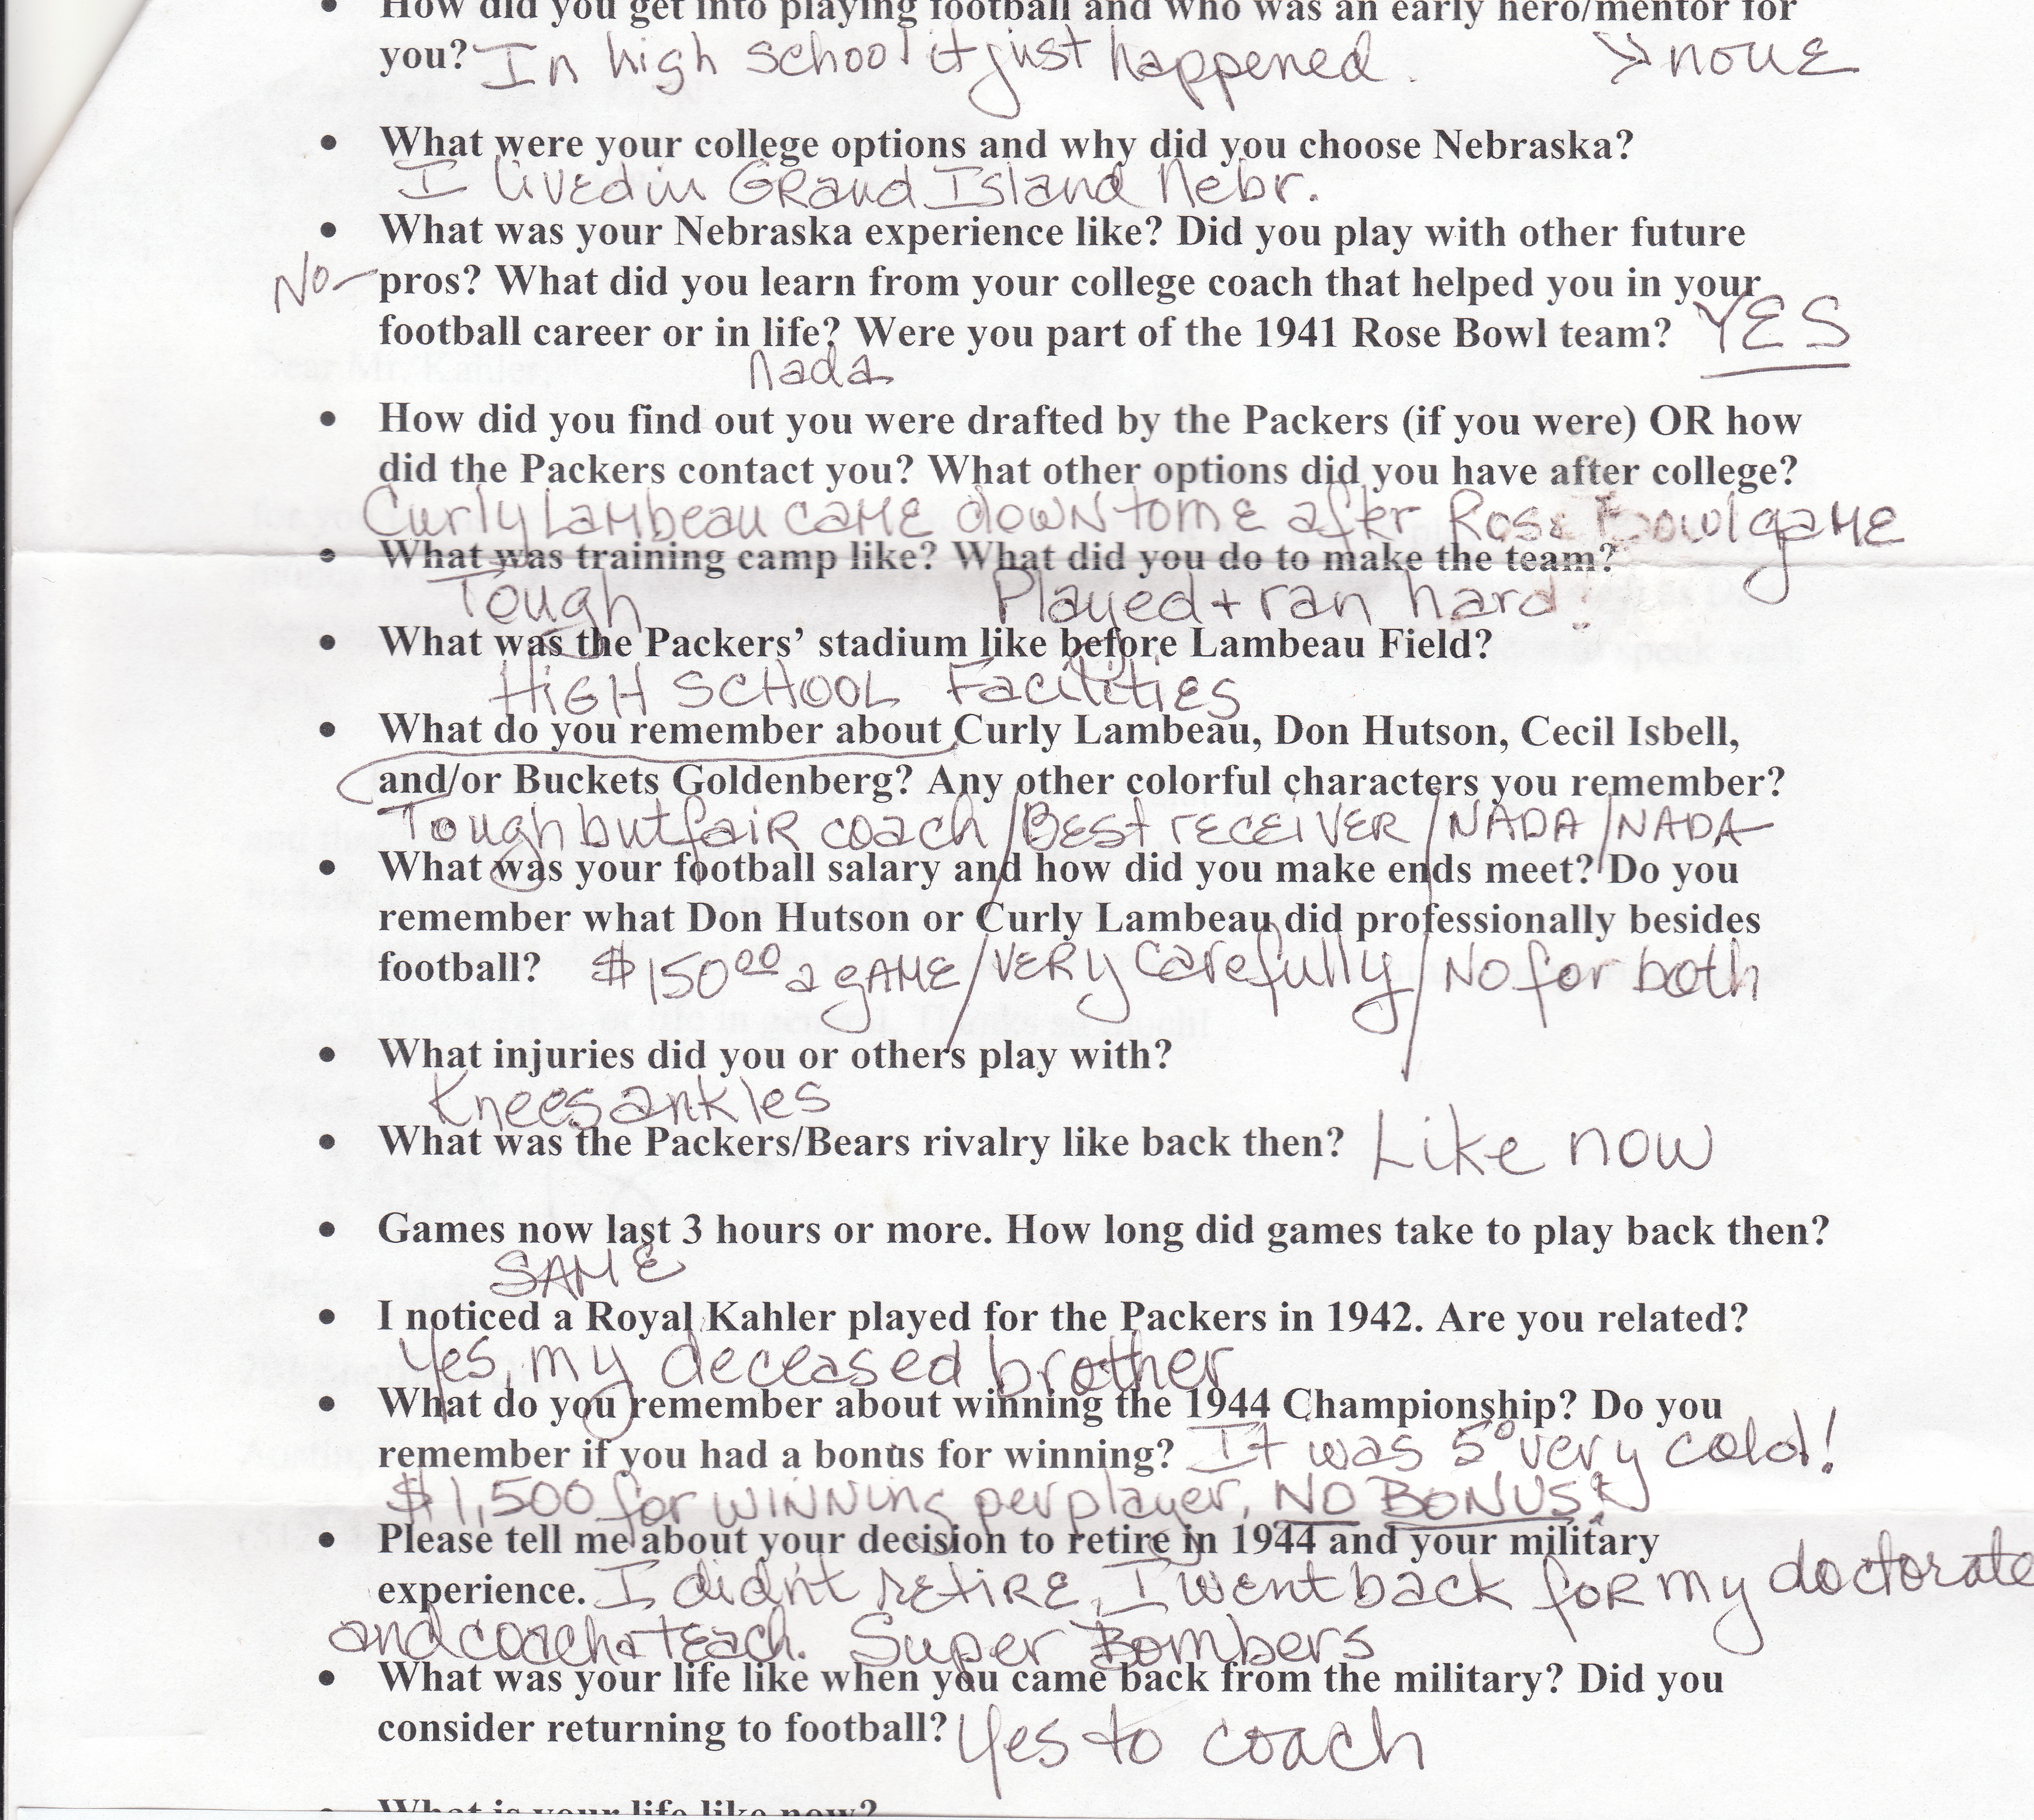 • How did you get into playing football and who was an early hero/mentor for
you? In high school it just happened. > none
• What were your college options and why did you choose Nebraska?
I lived in Grand Island Nebr.
• What was your Nebraska experience like? Did you play with other future
No- pros? What did you learn from your college coach that helped you in your
football career or in life? Were you part of the 1941 Rose Bowl team? YES
nada
Dear Mr. Kahler,
• How did you find out you were drafted by the Packers (if you were) OR how
did the Packers contact you? What other options did you have after college?
Curly Lambeau came down to me after Rose Bowl game
• What was training camp like? What did you do to make the team?
Tough Played + ran hard!
• What was the Packers’ stadium like before Lambeau Field?
HIGH SCHOOL Facilities
• What do you remember about Curly Lambeau, Don Hutson, Cecil Isbell,
and/or Buckets Goldenberg? Any other colorful characters you remember?
Tough but fair coach / Best receiver / NADA / NADA
• What was your football salary and how did you make ends meet? Do you
remember what Don Hutson or Curly Lambeau did professionally besides
football? $150.00 a game / very carefully / No for both
• What injuries did you or others play with?
Knees ankles
• What was the Packers/Bears rivalry like back then? Like now
• Games now last 3 hours or more. How long did games take to play back then?
SAME
• I noticed a Royal Kahler played for the Packers in 1942. Are you related?
Yes, my deceased brother
• What do you remember about winning the 1944 Championship? Do you
remember if you had a bonus for winning? It was 5° very cold!
$1,500 for winning per player, NO BONUS!
• Please tell me about your decision to retire in 1944 and your military
experience. I didn't retire, I went back for my doctorate
and coach + teach. Super Bombers
• What was your life like when you came back from the military? Did you
consider returning to football? Yes to coach
• What is your life like now?